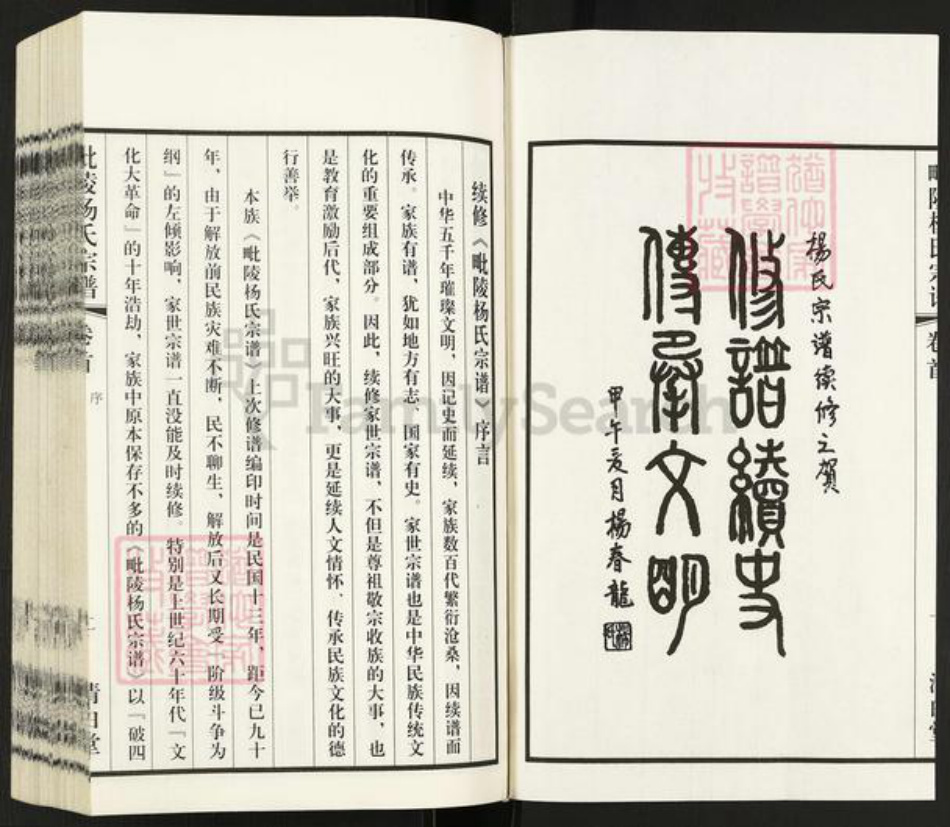 毗陵杨氏宗谱
卷首
楊氏宗譜续修之贺
修譜續史
傳承文明
甲午夏月楊春龍
续修《毗陵杨氏宗谱》序言
中华五千年璀璨文明，因记史而延续，家族数百代繁衍沧桑，因续谱而
传承。家族有谱，犹如地方有志、国家有史。家世宗谱也是中华民族传统文
化的重要组成部分。因此，续修家世宗谱，不但是尊祖敬宗收族的大事，也
是教育激励后代，家族兴旺的大事，更是延续人文情怀、传承民族文化的德
行善举。
本族《毗陵杨氏宗谱》上次修谱编印时间是民国十三年，距今已九十
年，由于解放前民族灾难不断，民不聊生，解放后又长期受『阶级斗争为
纲』的左倾影响，家世宗谱一直没能及时续修。特别是上世纪六十年代『文
化大革命』的十年浩劫，家族中原本保存不多的《毗陵杨氏宗谱》以『破四
毗陵杨氏宗谱
卷首
序
一
清白堂
FamilySearch